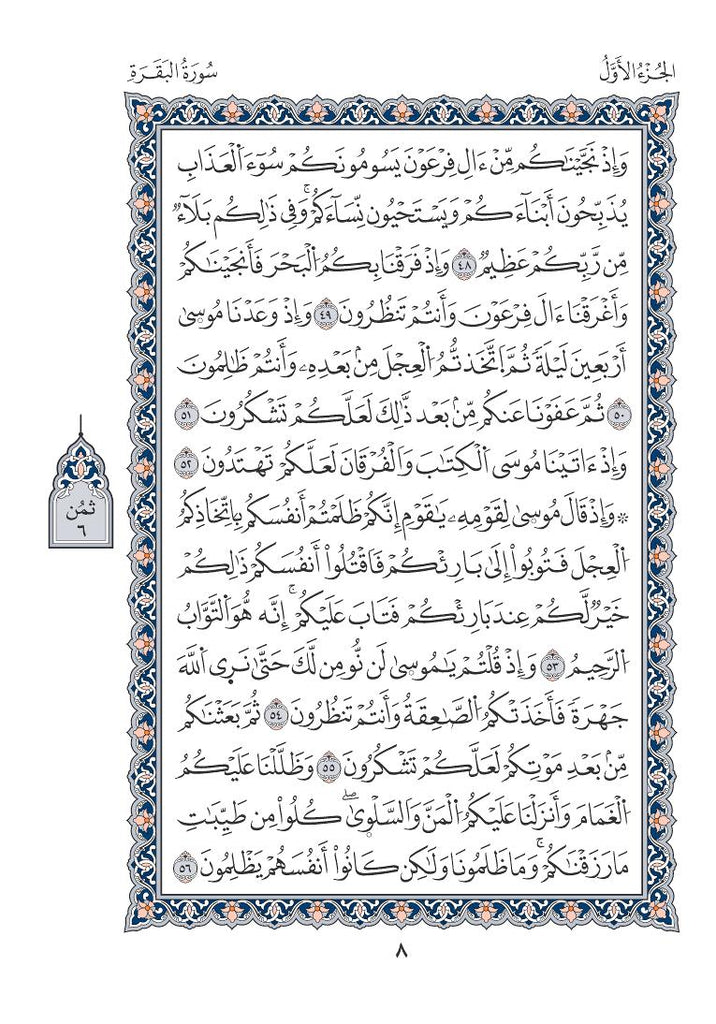 الجُزْءُ الأَوَّلُ
سُورَةُ البَقَرَةِ
وَإِذْ نَجَّيْنَٰكُم مِّنْ ءَالِ فِرْعَوْنَ يَسُومُونَكُمْ سُوٓءَ اَ۬لْعَذَابِ
يُذَبِّحُونَ أَبْنَآءَكُمْ وَيَسْتَحْيُونَ نِسَآءَكُمْۚ وَفِي ذَٰلِكُم بَلَآءٞ
مِّن رَّبِّكُمْ عَظِيمٞ ٤٨ وَإِذْ فَرَقْنَا بِكُمُ اُ۬لْبَحْرَ فَأَنجَيْنَٰكُمْ
وَأَغْرَقْنَا ءَالَ فِرْعَوْنَ وَأَنتُمْ تَنظُرُونَ ٤٩ وَإِذْ وَعَدْنَا مُوسۭيٰ
أَرْبَعِينَ لَيْلَةٗ ثُمَّ اَ۪تَّخَذتُّمُ اُ۬لْعِجْلَ مِنۢ بَعْدِهِۦ وَأَنتُمْ ظَٰلِمُونَ
٥٠ ثُمَّ عَفَوْنَا عَنكُم مِّنۢ بَعْدِ ذَّٰلِكَ لَعَلَّكُمْ تَشْكُرُونَ ٥١
وَإِذْ ءَاتَيْنَا مُوسَى اَ۬لْكِتَٰبَ وَالْفُرْقَانَ لَعَلَّكُمْ تَهْتَدُونَ ٥٢
۞ وَإِذْ قَالَ مُوسۭيٰ لِقَوْمِهِۦ يَٰقَوْمِ إِنَّكُمْ ظَلَمْتُمْ أَنفُسَكُم بِاتِّخَاذِكُمُ
اُ۬لْعِجْلَ فَتُوبُوٓاْ إِلَىٰ بَارِئْكُمْ فَاقْتُلُوٓاْ أَنفُسَكُمْ ذَٰلِكُمْ
خَيْرٞ لَّكُمْ عِندَ بَارِئْكُمْ فَتَابَ عَلَيْكُمْۚ إِنَّه هُّوَ اَ۬لتَّوَّابُ
اُ۬لرَّحِيمُ ٥٣ وَإِذْ قُلْتُمْ يَٰمُوسۭيٰ لَن نُّومِن لَّكَ حَتَّىٰ نَرَى اَ۬للَّهَ
جَهْرَةٗ فَأَخَذَتْكُمُ اُ۬لصَّٰعِقَةُ وَأَنتُمْ تَنظُرُونَ ٥٤ ثُمَّ بَعَثْنَٰكُم
مِّنۢ بَعْدِ مَوْتِكُمْ لَعَلَّكُمْ تَشْكُرُونَ ٥٥ وَظَلَّلْنَا عَلَيْكُمُ
اُ۬لْغَمَامَ وَأَنزَلْنَا عَلَيْكُمُ اُ۬لْمَنَّ وَالسَّلْوۭيٰۖ كُلُواْ مِن طَيِّبَٰتِ
مَا رَزَقْنَٰكُمْۚ وَمَا ظَلَمُونَا وَلَٰكِن كَانُوٓاْ أَنفُسَهُمْ يَظْلِمُونَ ٥٦
ثُمُن
٦
٨